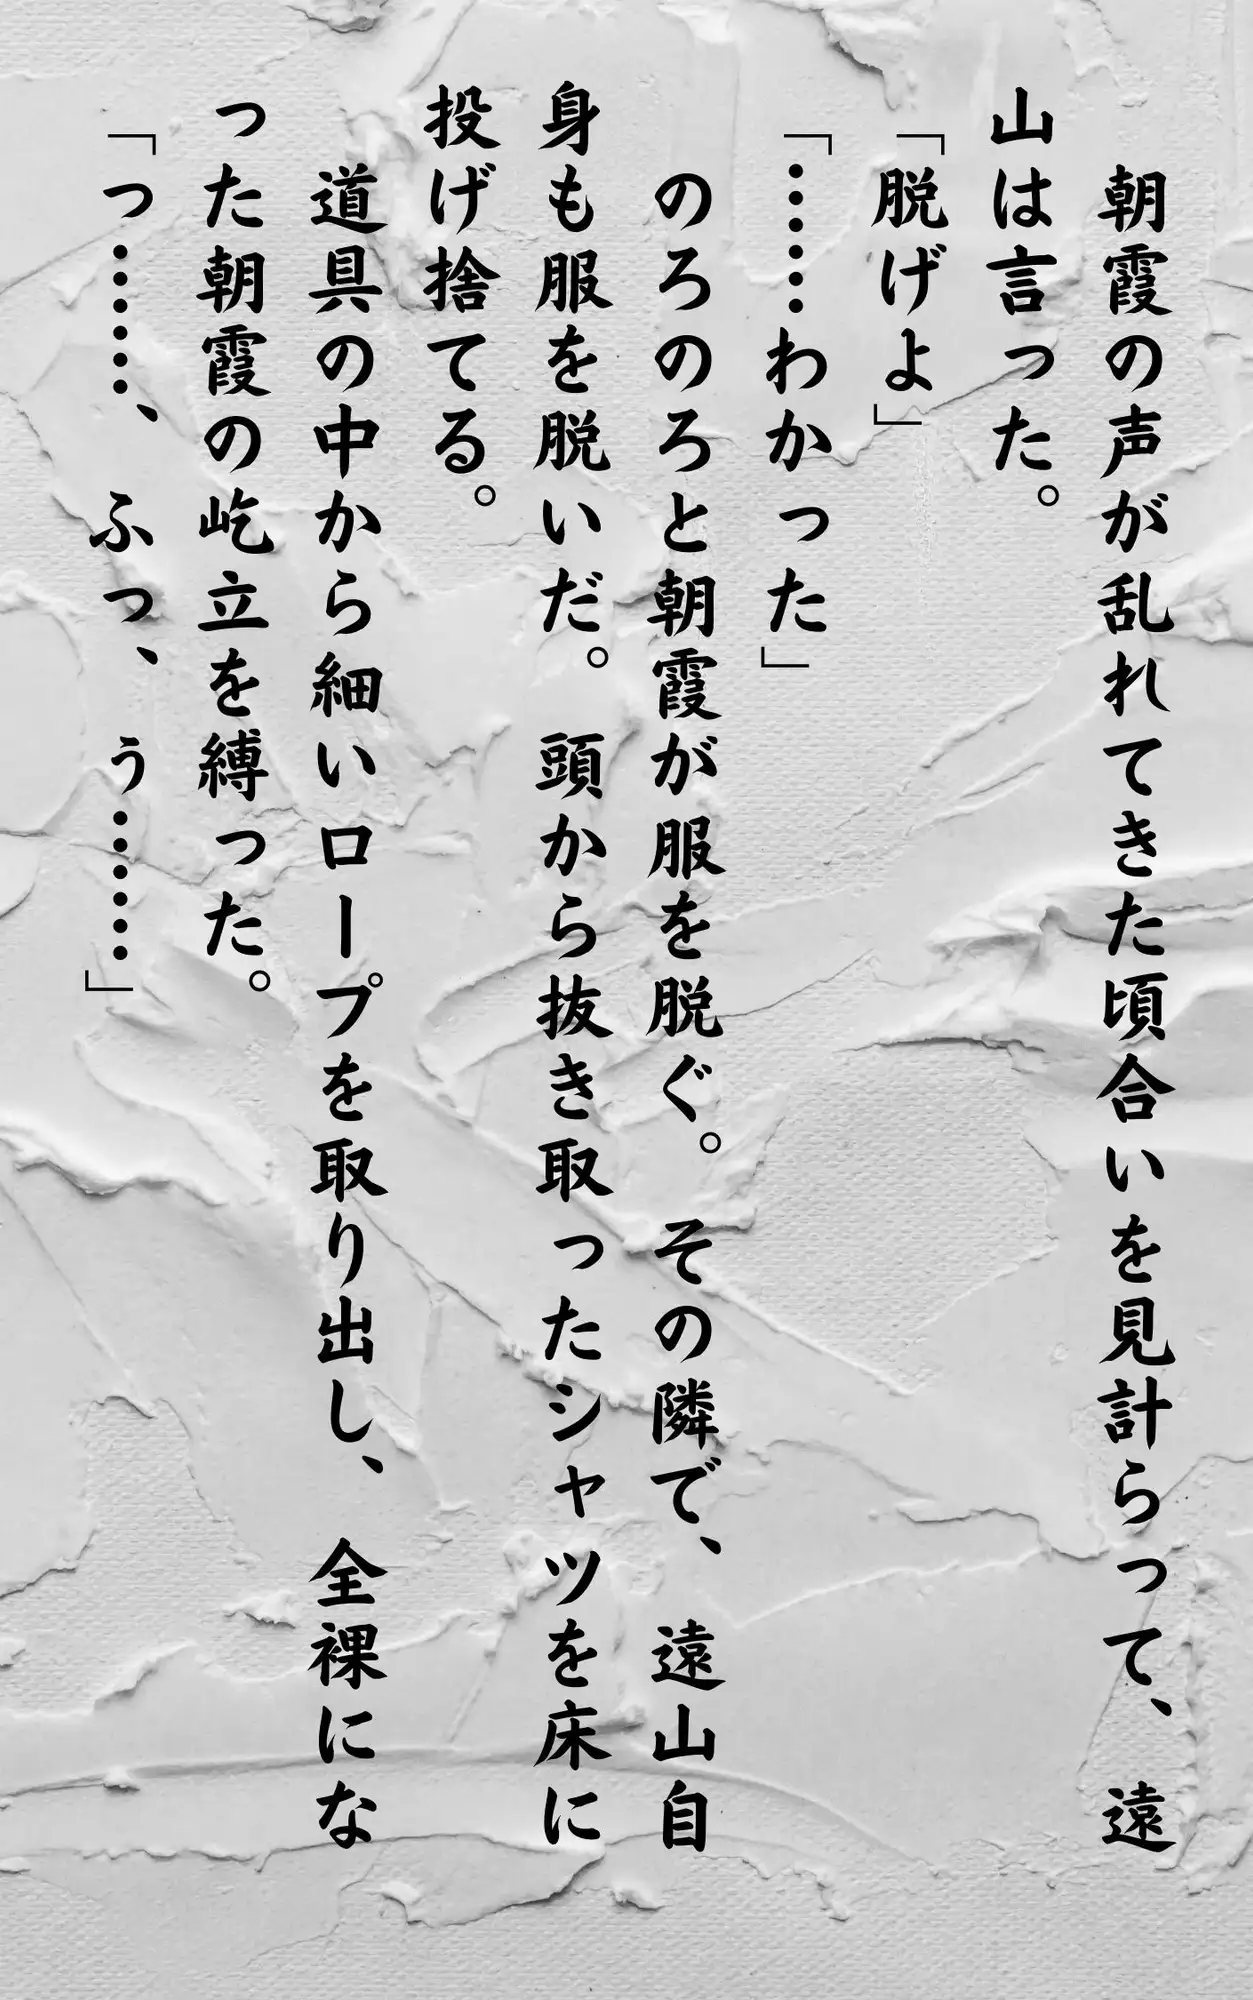 朝霞の声が乱れてきた頃合いを見計らって、遠
山は言った。
「脱げよ」
「……わかった」
　のろのろと朝霞が服を脱ぐ。その隣で、遠山自
身も服を脱いだ。頭から抜き取ったシャツを床に
投げ捨てる。
　道具の中から細いロープを取り出し、全裸にな
った朝霞の屹立を縛った。
「っ……、ふっ、ぅ……」